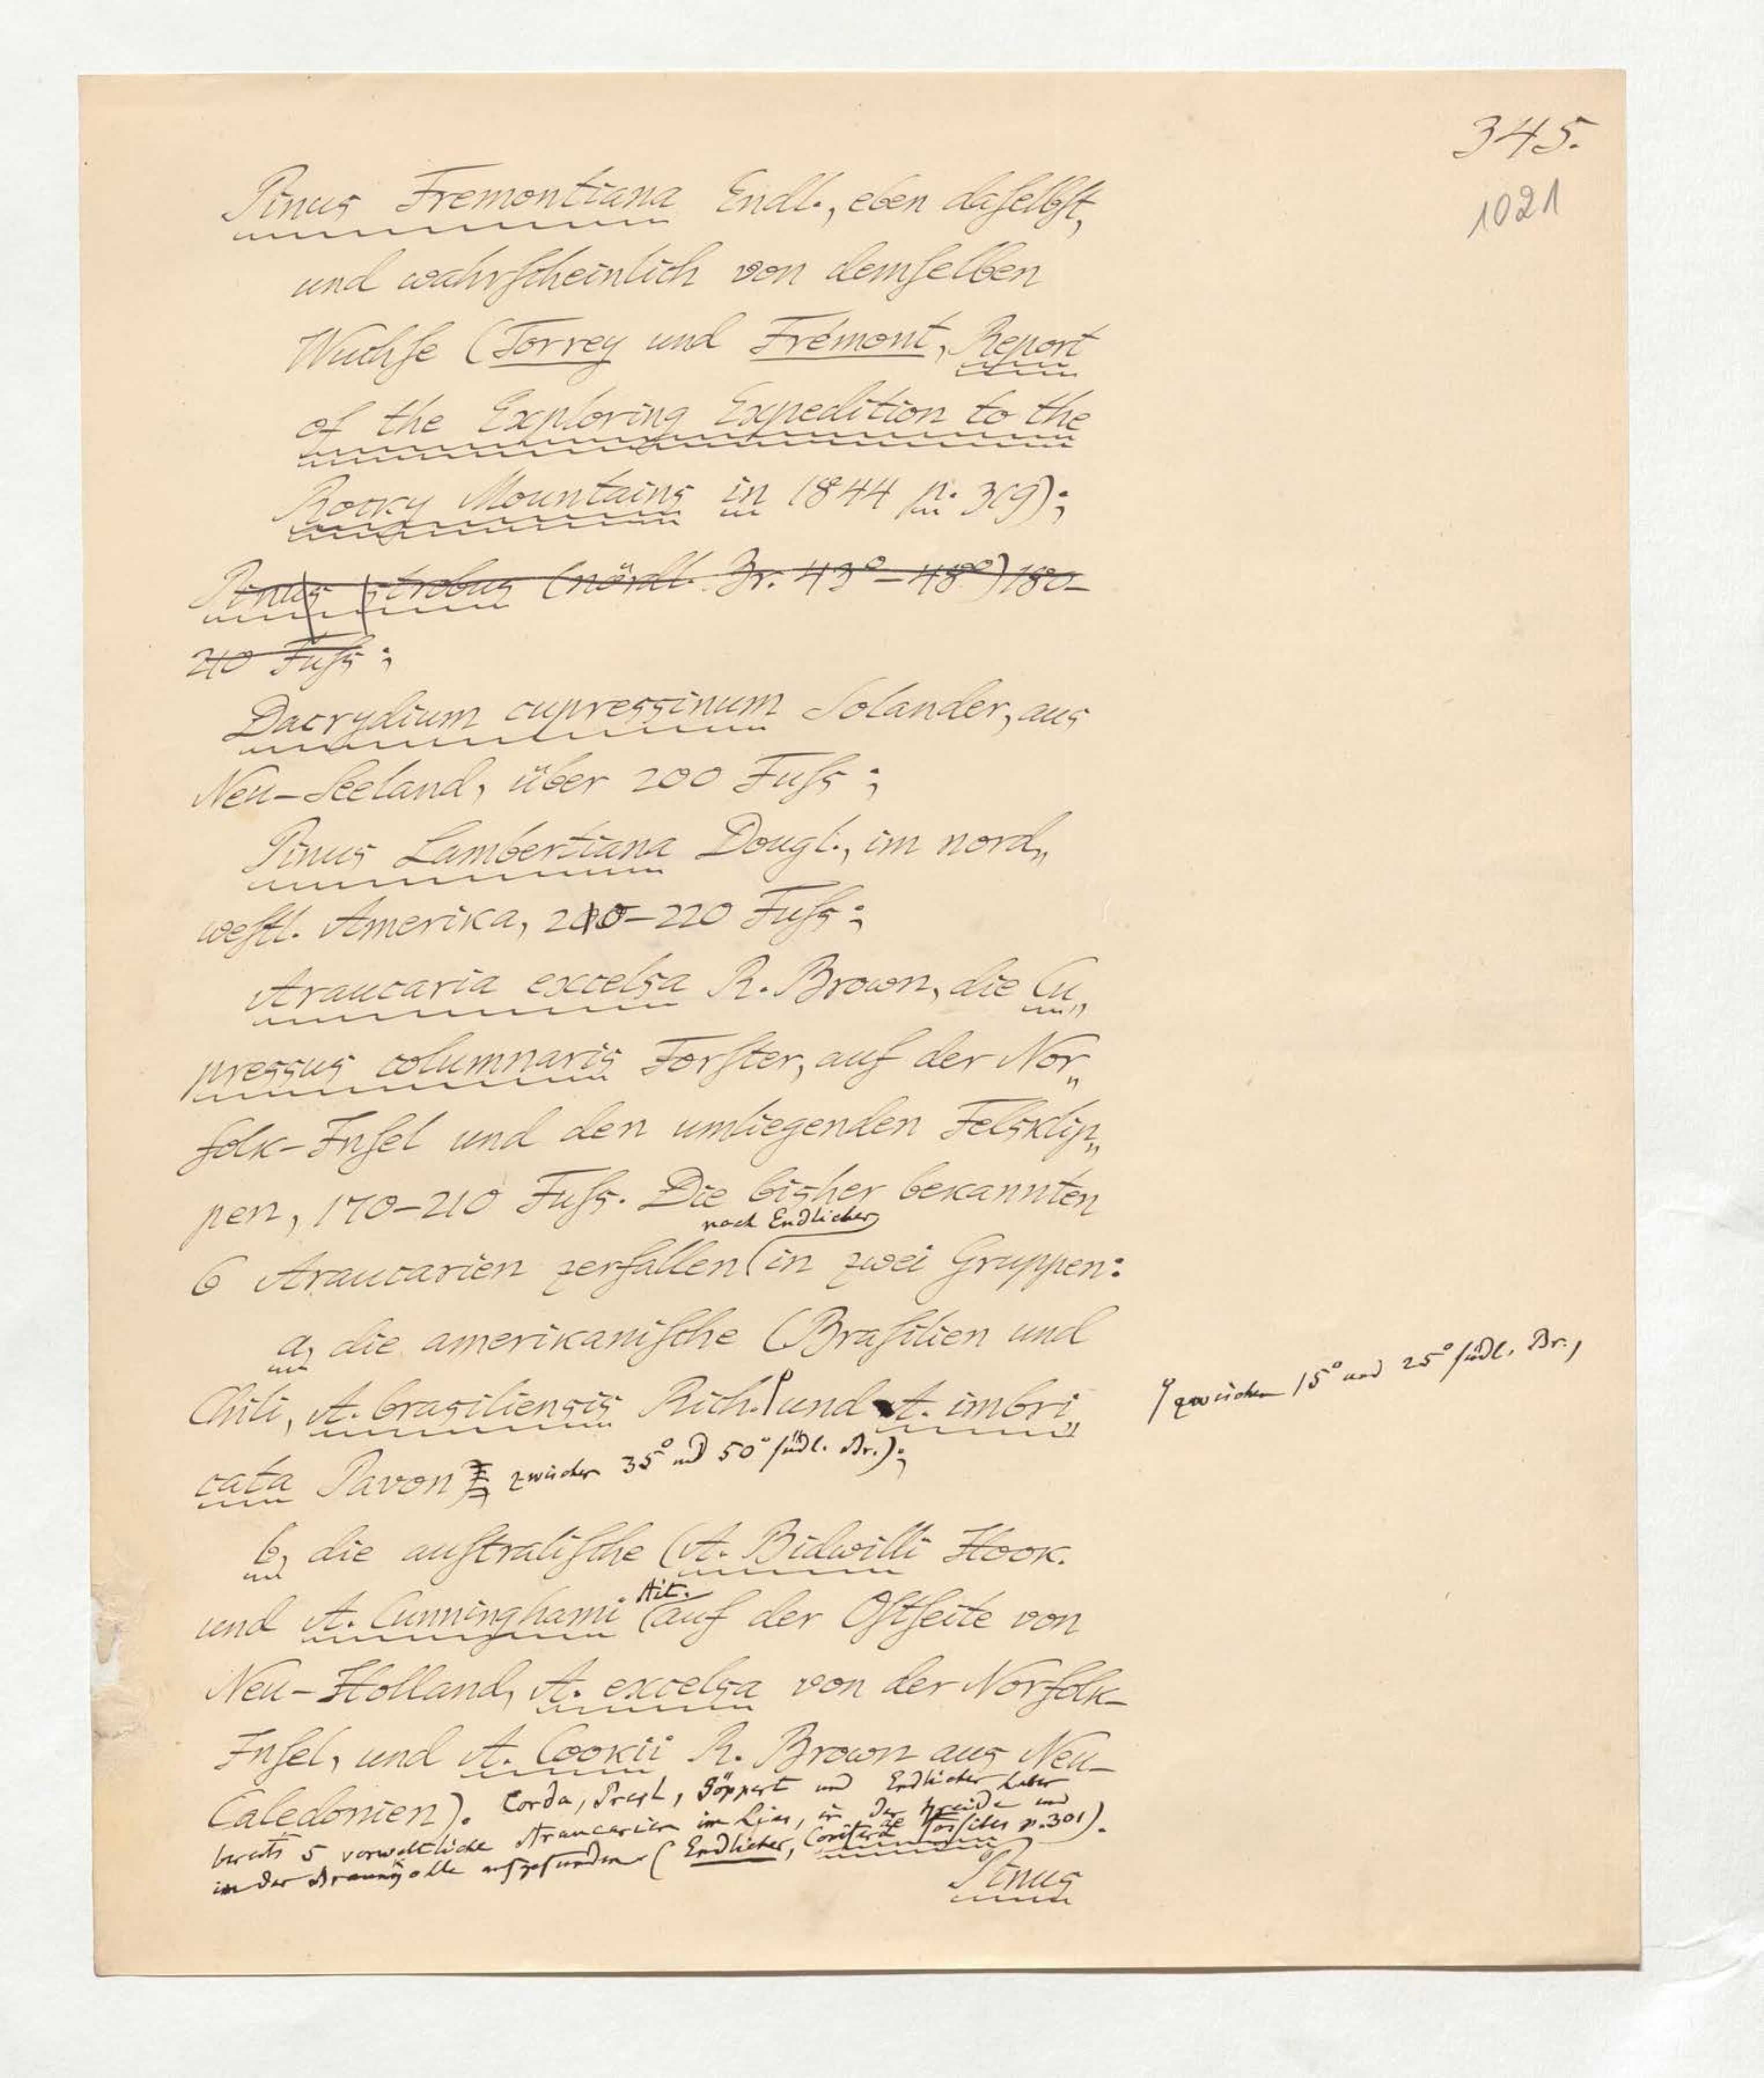 345.
1021
Pinus Fremontiana Endl., eben daſelbſt,
und wahrſcheinlich von demſelben
Wuchſe (Torrey und Frémont, Report
of the Exploring Expedition to the
Rocky Mountains in 1844 p. 319);
Pinus strobus (nördl. Br. 43°–48°) 180–
210 Fuſs;
Dacrydium cupressinum Solander, aus
Neu-Seeland, über 200 Fuſs;
Pinus Lambertiana Dougl., im nord„
weſtl. Amerika, 210–220 Fuſs;
Araucaria excelsa R. Brown, die Cu„
pressus columnaris Forſter, auf der Nor„
folk-Inſel und den umliegenden Felsklip„
pen, 170–210 Fuſs. Die bisher bekannten
nach Endlicher
6 Araucarien zerfallen in zwei Gruppen:
a, die amerikaniſche (Braſilien und
Chili, A. brasiliensis Rich. und A. imbri„
zwischen 15° und 25° ſüdl. Br.,
cata Pavon zwischen 35° und 50° ſüdl. Br.);
b, die auſtraliſche (A. Bidwilli Hook.
Ait.
und A. Cunninghami auf der Oſtſeite von
Neu-Holland, A. excelsa von der Norfolk-
Inſel, und A. Cookii R. Brown aus Neu-
Caledonien). Corda, Presl, Göppert und Endlicher haben
bereits 5 vorweltliche Araucarien im Lias, in der Kreide und
in der Braunkohle aufgefunden (Endlicher, Coniferae fossiles p. 301).
Pinus